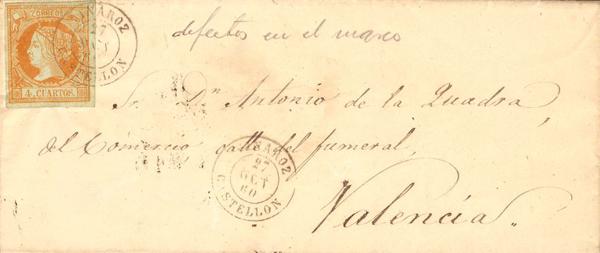 CORREOS
4 CUARTOS.
27
CASTELLON
defectos en el marco
Sr. Dn Antonio de la Quadra,
del Comercio calle del fumeral,
27
OCT
60
CASTELLON
Valencia.